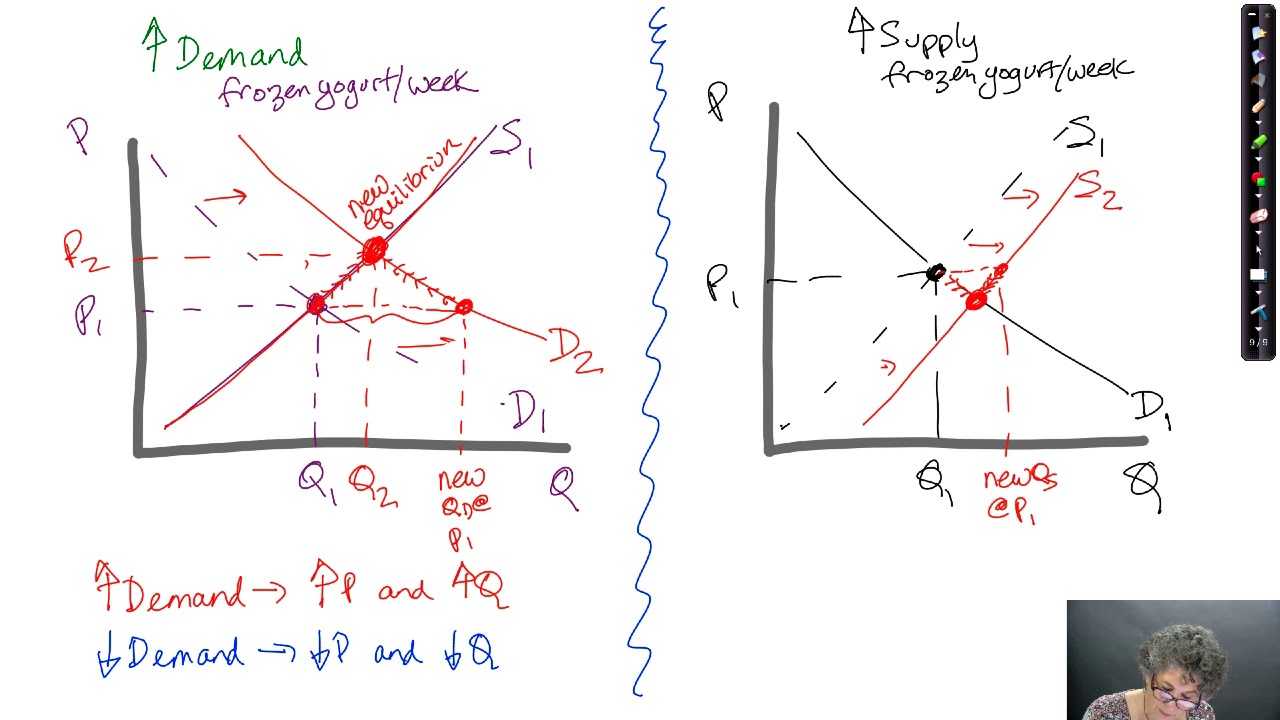 ↑Demand
frozen yogurt/week
P
S1
new
equilibrium
P2
P1
D2
D1
Q1
Q2
new
QD@
P1
Q
↑Demand → ↑P and ↑Q
↓Demand → ↓P and ↓Q
↑Supply
frozen yogurt/week
P
S1
S2
P1
D1
Q1
new Qs
@P1
Q
9/9